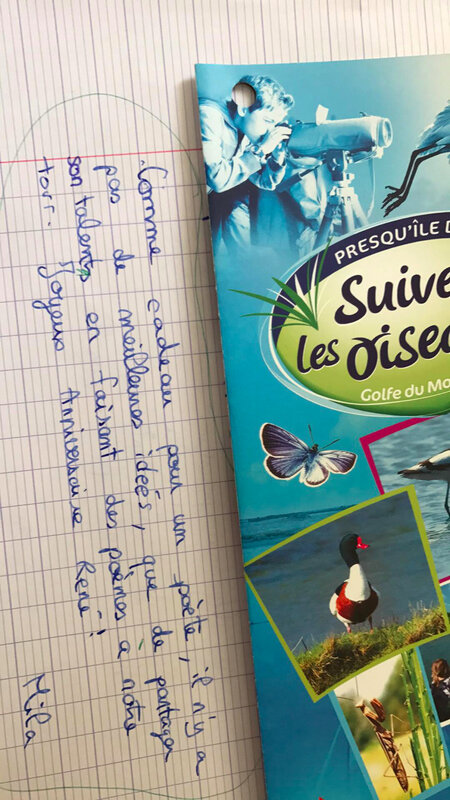 Comme cadeau pour un poète, il n'y a
pas de meilleures ideés, que de partager
son talents en faisant des poèmes à notre
tour. Joyeux Anniversaire René !
Mila
PRESQU'ÎLE D
Suive
les Oisea
Golfe du Mo